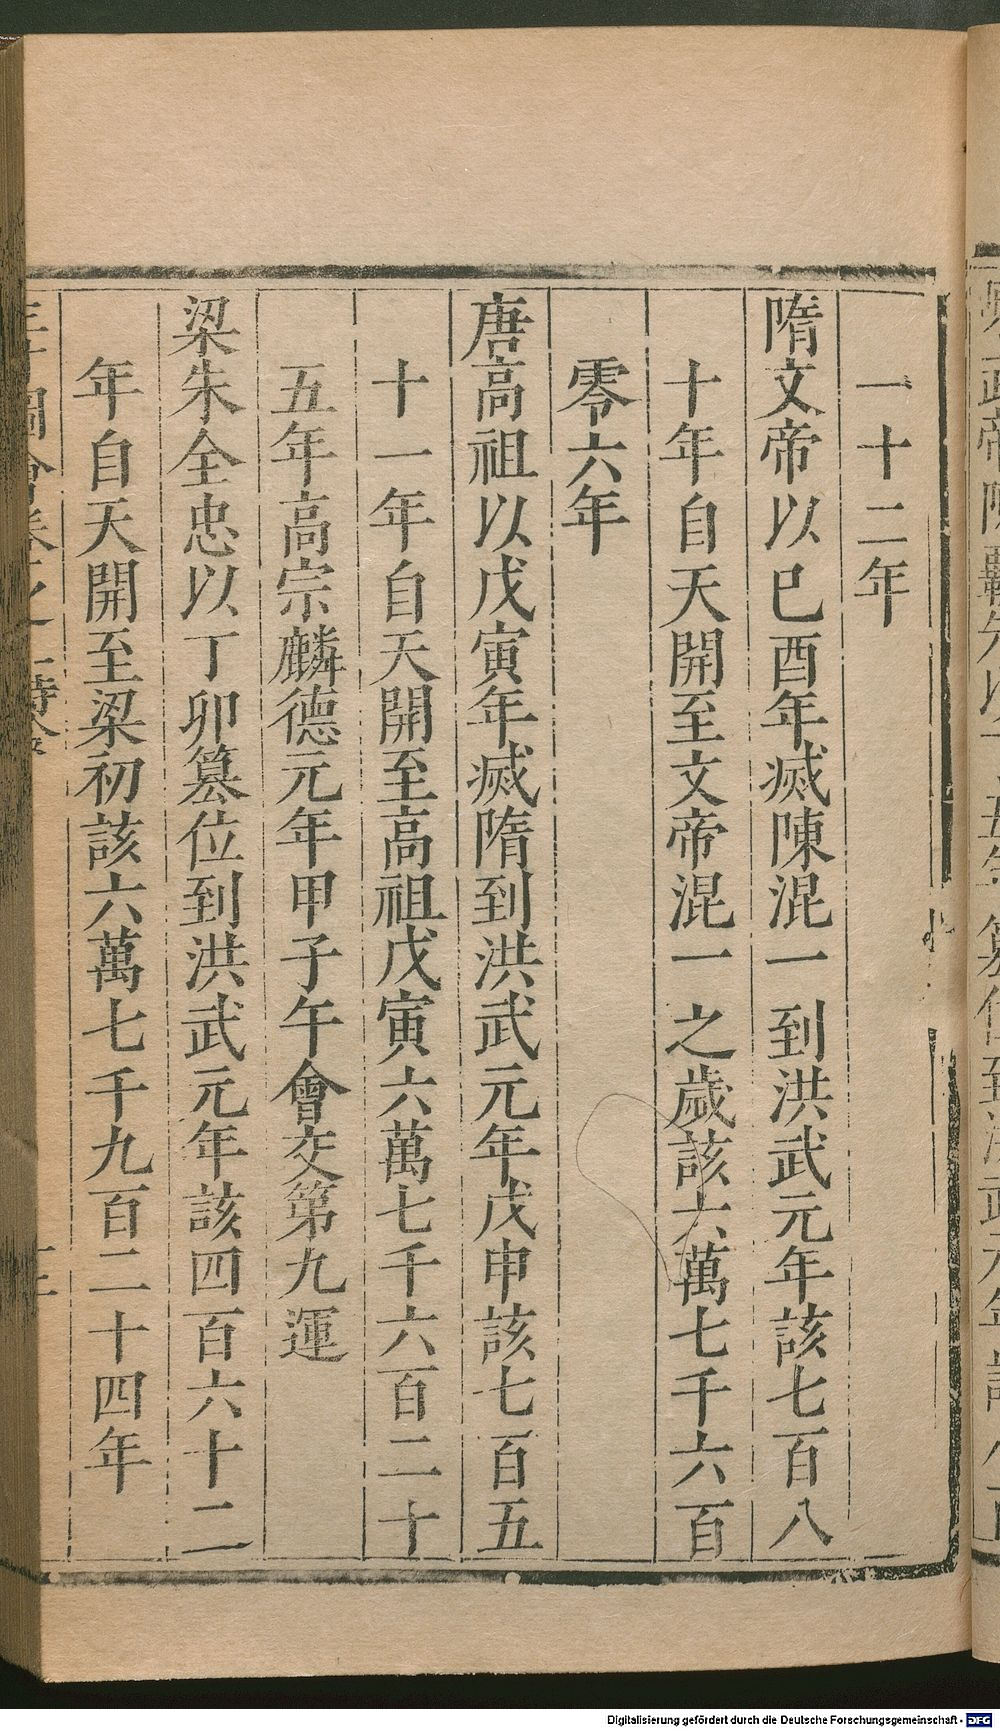 一十二年
隋文帝以巳酉年滅陳混一到洪武元年該七百八
十年自天開至文帝混一之歲該六萬七千六百
零六年
唐高祖以戊寅年滅隋到洪武元年戊申該七百五
十一年自天開至高祖戊寅六萬七千六百二十
五年高宗麟德元年甲子午會交第九運
梁朱全忠以丁卯篡位到洪武元年該四百六十二
年自天開至梁初該六萬七千九百二十四年
Digitalisierung gefördert durch die Deutsche Forschungsgemeinschaft - DFG